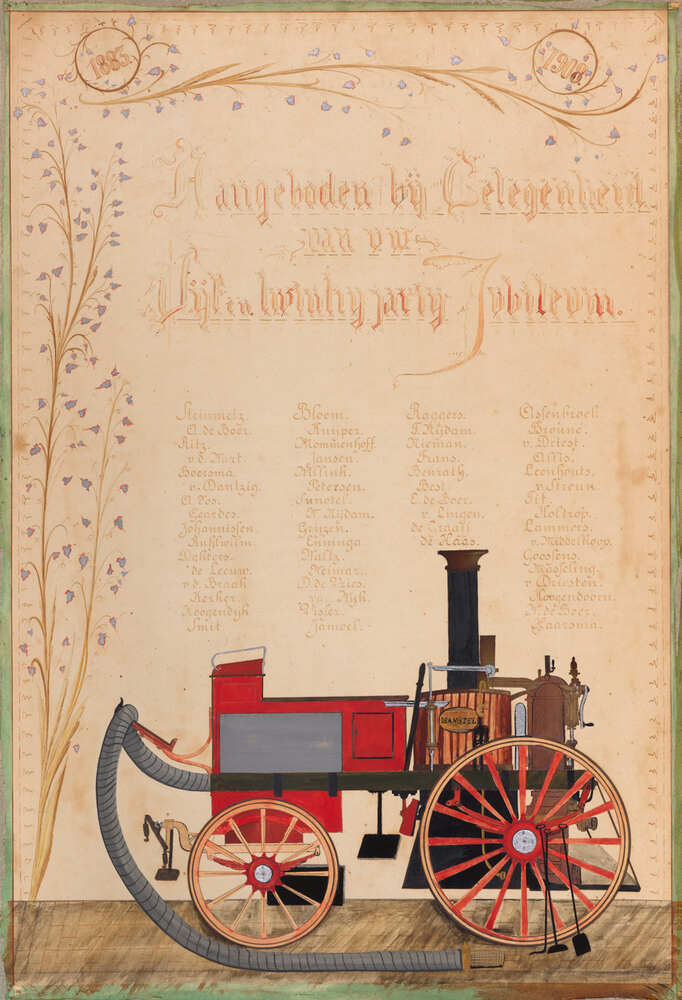 1885.
1908.
Aangeboden bij Gelegenheid
van uw
Vijf en twintig jarig Jubileum.
Steinmetz.
A. de Boer.
Ritz.
v.d. Hart.
Boersma.
v. Dantzig.
A. Vos.
Geerdes.
Johannissen.
Dekkers.
de Leeuw.
v.d. Braak
Kerker.
Hoogendyk
Smit
Bloem.
Kuijper.
Mommenhoff.
Jansen.
Petersen.
W. Rijdam.
Gruzen.
Eminga
Waltz.
Meimar.
D. de Vries.
Visser.
Samoel.
Raggers.
T. Rijdam.
Nieman.
Frans.
Benrath.
Best
E. de Boer.
v. Lingen.
de Graaff
de Haas.
Assenbroek.
Broune.
v. Driest.
Leenhouts.
v. Streun
Tit.
Holtrop.
Lammers.
v. Middelkoop.
Goossens.
Masseling.
v. Drusten
Hoogendoorn.
H. de Boer.
Zaarsma.